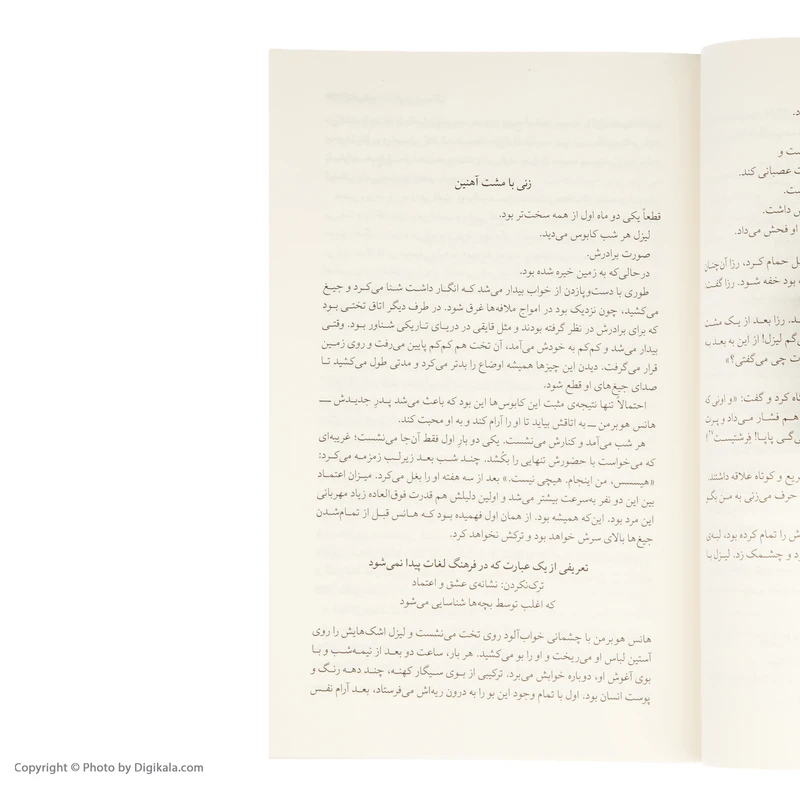 زنی با مشت آهنین
قطعاً یکی دو ماه اول از همه سخت‌تر بود.
لیزل هر شب کابوس می‌دید.
صورت برادرش.
درحالی‌که به زمین خیره شده بود.
طوری با دست‌وپازدن از خواب بیدار می‌شد کـه انگـار داشـت شـنا مـی‌کـرد و جیـغ
می‌کشید، چون نزدیک بود در امواج ملافه‌ها غرق شود. در طرف دیگر اتاق تختی بـود
که برای برادرش در نظر گرفته بودند و مثل قایقی در دریـای تـاریکی شـناور بـود. وقتـی
بیدار می‌شد و کم‌کم به خودش می‌آمد، آن تخت هم کم‌کم پایین می‌رفت و روی زمـین
قرار می‌گرفت. دیدن این چیزها همیشه اوضاع را بدتر می‌کرد و مدتی طول می‌کشید تـا
صدای جیغ‌های او قطع شود.
احتمالاً تنها نتیجه‌ی مثبت این کابوس‌ها این بود که باعث می‌شد پـدرِ جدیـدش ـــ
هانس هوبرمن ـــ به اتاقش بیاید تا او را آرام کند و به او محبت کند.
هر شب می‌آمد و کنارش می‌نشست. یکی دو بارِ اول فقط آن‌جا می‌نشست؛ غریبه‌ای
که می‌خواست با حضورش تنهایی را بکُشد. چنـد شـب بعـد زیرلـب زمزمـه مـی‌کـرد:
«هیسسس، من اینجام. هیچی نیست.» بعد از سه هفته او را بغل می‌کرد. میـزان اعتمـاد
بین این دو نفر به‌سرعت بیشتر می‌شد و اولین دلیلش هم قدرت فوق‌العاده زیاد مهربانی
این مرد بود. این‌که همیشه بود. از همان اول فهمیده بـود کـه هـانس قبـل از تمـام‌شـدن
جیغ‌ها بالای سرش خواهد بود و ترکش نخواهد کرد.
تعریفی از یک عبارت که در فرهنگ لغات پیدا نمی‌شود
ترک‌نکردن: نشانه‌ی عشق و اعتماد
که اغلب توسط بچه‌ها شناسایی می‌شود
هانس هوبرمن با چشمانی خواب‌آلود روی تخت می‌نشست و لیزل اشک‌هایش را روی
آستین لباس او می‌ریخت و او را بو می‌کشید. هر بار، ساعت دو بعـد از نیمه‌شـب و بـا
بوی آغوش او، دوباره خوابش می‌برد. ترکیبی از بـوی سـیگار کهنـه، چنـد دهـه رنـگ و
پوست انسان بود. اول با تمام وجود این بو را به درون ریه‌اش می‌فرستاد، بعـد آرام نفـس
ت عصبانی کند.
او فحش می‌داد.
ل حمام کـرد، رزا آن‌چنان
بود خفه شود. رزا گفت
د. رزا بعـد از یـک مشت
گم لیزل! از این به بعد
ت چی می‌گفتی؟»
اه کرد و گفت: «و اونی که
هـم فشـار مـی‌داد و
ـی پاپـا! فرشتیست
ریع و کوتاه علاقه داشتند.
حرف می‌زنی به مـن
ش را تمام کرده بود،
د و چشمک زد. لیـزل
Copyright © Photo by Digikala.com